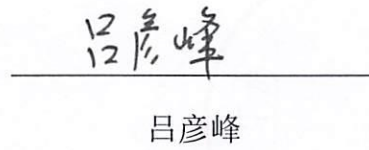 吕彦峰
吕彦峰